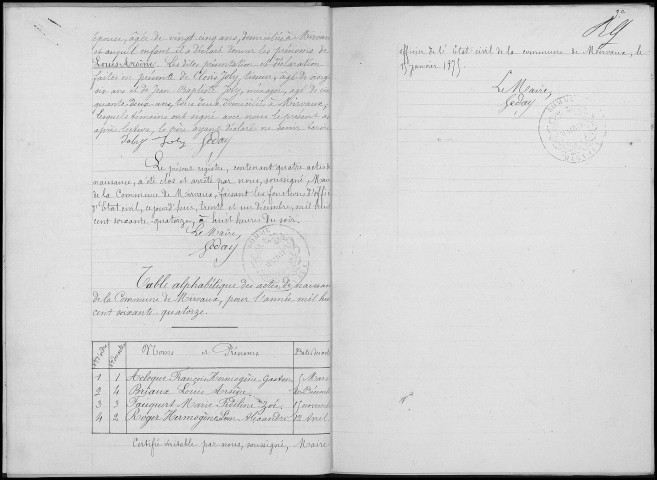 épouse, âgée de vingt cinq ans, domiciliée à Mirvaux
et auquel enfant il a déclaré donner les prénoms de
Louis Arsène. Les dites présentation et déclaration
faites en présence de Clovis Joly, tisseur, âgé de vingt
six ans et de Jean Baptiste Joly, ménager, âgé de cin
quante deux ans, tous deux domiciliés à Mirvaux,
lesquels témoins ont signé avec nous le présent acte
après lecture, le père ayant déclaré ne savoir
Joly Joly Goday
Le présent registre, contenant quatre actes de
naissance, a été clos et arrêté par nous, soussigné, Maire
de la Commune de Mirvaux, faisant les fonctions d'offi
d'état civil, ce jourd'hui, trente et un décembre, mil huit
cent soixante quatorze, à huit heures du soir.
Le Maire,
Goday
Table alphabétique des actes de naissan
de la Commune de Mirvaux, pour l'année mil hui
cent soixante quatorze.
Noms et Prénoms
1 1 Acloque François Hermogène Gaston 5 Mars
2 4 Louis Arsène
3 3 Marie Zoé 15 novemb
4 2 Roger Hermogène Léon Alexandre 12 Avril
Certifié véritable par nous, soussigné, Maire
officier de l'Etat civil de la commune de Mirvaux, le
15 janvier 1875.
Le Maire,
Goday